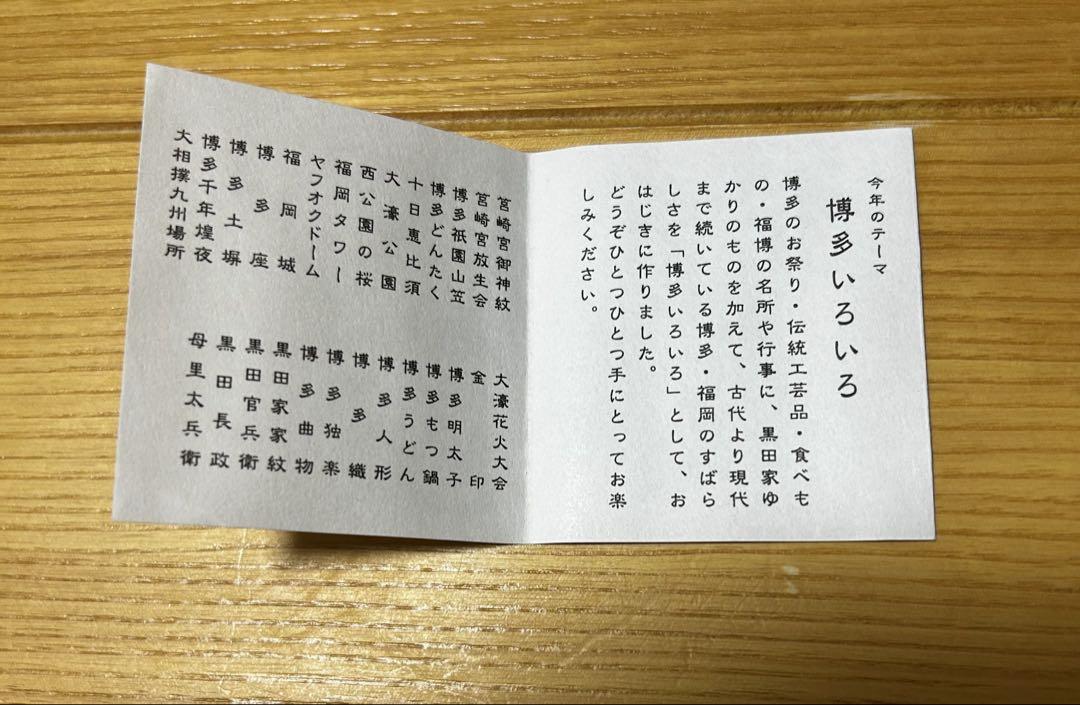 今年のテーマ
博多いろいろ
博多のお祭り・伝統工芸品・食べも
の・福博の名所や行事に、黒田家ゆ
かりのものを加えて、古代より現代
まで続いている博多・福岡のすばら
しさを「博多いろいろ」として、お
はじきに作りました。
どうぞひとつひとつ手にとってお楽
しみください。
筥崎宮御神紋
筥崎宮放生会
博多祇園山笠
博多どんたく
十日恵比須
大濠公園
西公園の桜
福岡タワー
ヤフオクドーム
福岡城
博多座
博多土塀
博多千年煌夜
大相撲九州場所
大濠花火大会
金印
博多明太子
博多もつ鍋
博多うどん
博多人形
博多織
博多独楽
博多曲物
黒田家家紋
黒田官兵衛
黒田長政
母里太兵衛